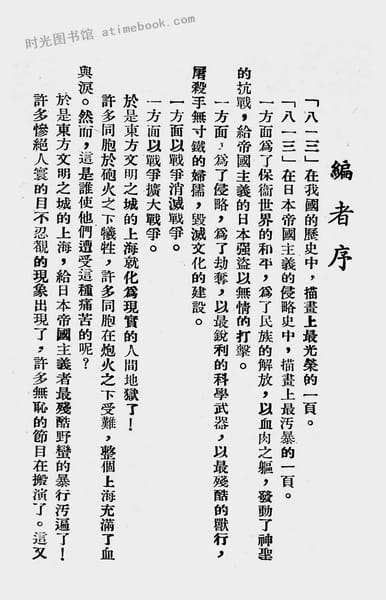 时光图书馆 atimebook.com
編者序
「八一三」在我國的歷史中，描畫上最光榮的一頁。
「八一三」在日本帝國主義的侵略史中，描畫上最污暴的一頁。
一方面爲了保衞世界的和平，爲了民族的解放，以血肉之軀，發動了神聖
的抗戰，給帝國主義的日本强盜以無情的打擊。
一方面，爲了侵略，爲了劫奪，以最銳利的科學武器，以最殘酷的獸行，
屠殺手無寸鐵的婦孺，毀滅文化的建設。
一方面以戰爭消滅戰爭。
一方面以戰爭擴大戰爭。
於是東方文明之城的上海就化爲現實的人間地獄了！
許多同胞於砲火之下犧牲，許多同胞在炮火之下受難，整個上海充滿了血
與淚。然而，這是誰使他們遭受這種痛苦的呢？
於是東方文明之城的上海，給日本帝國主義者最殘酷野蠻的暴行污遍了！
許多慘絕人寰的目不忍覩的現象出現了，許多無恥的節目在搬演了。這又